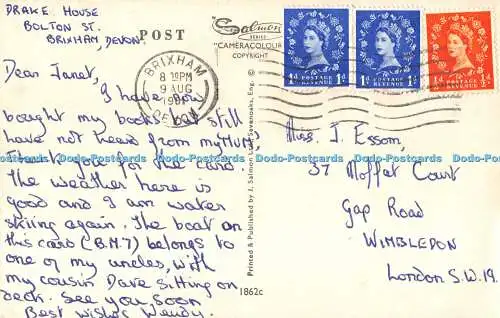 DRAKE HOUSE
BOLTON ST.
BRIXHAM, DEVON.
POST
Salmon
SERIES
"CAMERACOLOUR"
COPYRIGHT
BRIXHAM
8 15PM
9 AUG
DEVON
1D POSTAGE REVENUE 1D
1D POSTAGE REVENUE 1D
POSTAGE REVENUE
Dear Janet,
I have now
bought my books but still
have not heard from my Hurst,
Thank you for the card.
The weather here is
good and I am water
skiing again. The boat on
this card (B.M.7) belongs to
one of my uncles, with
my cousin Dave sitting on
deck. See you soon
Best wishes Wendy.
Printed & Published by J. Salmon Ltd., Sevenoaks, Eng. ©
1862c
Miss. J. Essom,
37 Moffat Court
Gap Road
WIMBLEDON
LONDON S.W.19.
Dodo-Postcards Dodo-Postcards Dodo-Postcards Dodo-Postcards Dodo-Postcards Dodo-Postcards